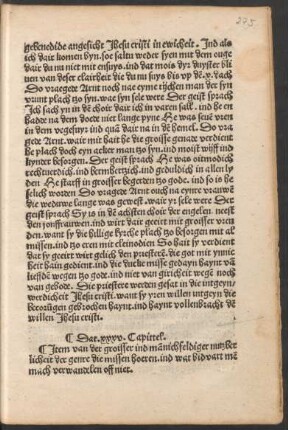 275
gebenedide angesicht Jhesu cristi in ewicheit. Ind als
ich dair komen byn. soe salm weder syen mit dem ouge
dair du nu niet mit ensuys. ind dat mois dyr duyster bli
uen van deser clairheit die du nu suys bis vp dē.x.dach
Do vraegede Arnt noch nae eyme rijchen man der syn
vrunt plach tzo syn. wae syn sele were Der geist sprach
Ich syn yn in dē choir dair ich in varen sall. ind he en
hadde na dem doede niet lange pyne He was seuē vren
in dem vegefuyr ind quā dair na in dē hemel. Do vra
gede Arnt. wair mit hait he die groisse genade verdient
he plach doch eyn acker man tzo syn. ind moist wijff ind
kynder besorgen. Der geist sprach He was oitmodich
rechtuerdich. ind bermhertzich. ind geduldich in allen ly
den He starff in groisser begerden tzo gode. ind so is he
selich worden Do vragede Arnt ouch na eynre vrauwē
die weduwe lange was gewest. wair yr sele were Der
geist sprach Sy is in dē achsten choir der engelen. neest
den yonffrauwen. ind wirt dair geeirt mit groisser vreu
den. want sy die hillige kyrche plach tzo besorgen mit al
missen. ind tzo eren mit cleinodien So hait sy verdient
dat sy geeirt wirt gelich den priesterē. die got mit ynnic
heit hain gedient. ind die vurke misse gedayn haynt vā
liefdē wegen tzo gode. ind niet van giricheit wegē noch
van gebode. Die priestere werden gesat in die intgeyn
werdicheit Jhesu cristi. want sy vren willen intgeyn die
becorūgen gebrochen haynt. ind haynt vollenbracht dē
willen Jhesu cristi.
¶ Dat .xxxv. Capittel.
¶ Item van der groisser ind mānichfeldiger nutzber
licheit der genre die missen hoeren. ind wat bidvart mē
mach verwandelen off niet.